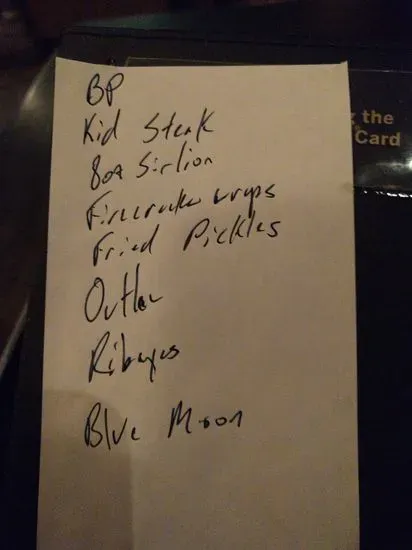 BP
Kid Steak
8oz Sirlion
Firecracker wraps
Fried Pickles
Outlaw
Ribeyes
Blue Moon
the
Card